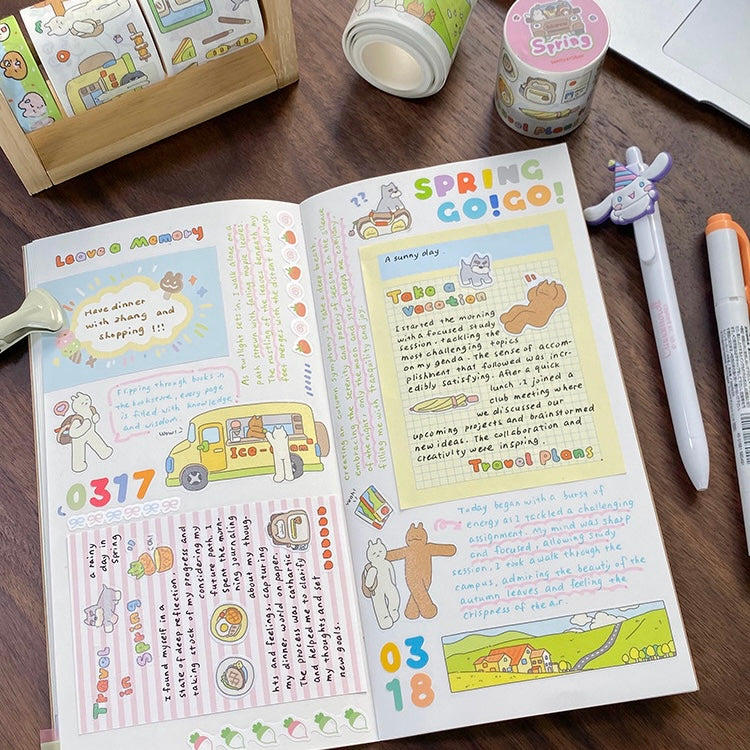 Spring
Travel Plans
Leave a Memory
Have dinner
with zhang and
shopping !!!
Flipping through books in
the bookstore, every page
is filled with knowledge
and wisdom.
As twilight sets in, I walk
path strewn with fallen maple leaves
The rustling of the leaves beneath my
feet merges with the distant bird songs,
0317
Travel in Spring
a rainy
day in
spring
I found myself in a
state of deep reflection.
taking stock of my progress and
considering my
future path. I
spent the morn-
ning journaling
about my thoug-
hts and feelings, capturing
my dinner world on paper.
The process was cathartic
and helped me to clarify
my thoughts and set
new goals.
creating an autumn symphony. I take a deep breath,
embracing the serenity and season. In the silence
of the night, only the moon and stars keep me company
filling me with tranquility and joy.
SPRING
GO!GO!
A sunny day.
Take a
vacation
I started the morning
with a focused study
session, tackling the
most challenging topics
on my genda. The sense of accom-
plishment that followed was incr-
edibly satisfying. After a quick
lunch, I joined a
club meeting where
we discussed our
upcoming projects and brainstormed
new ideas. The collaboration and
creativity were inspring.
Travel Plans
Today began with a burst of
energy as I tackled a challenging
assignment. My mind was sharp
and focused, allowing study
session, I took a walk through the
campus, admiring the beauty of the
autumn leaves and feeling the
crispness of the air.
03
18